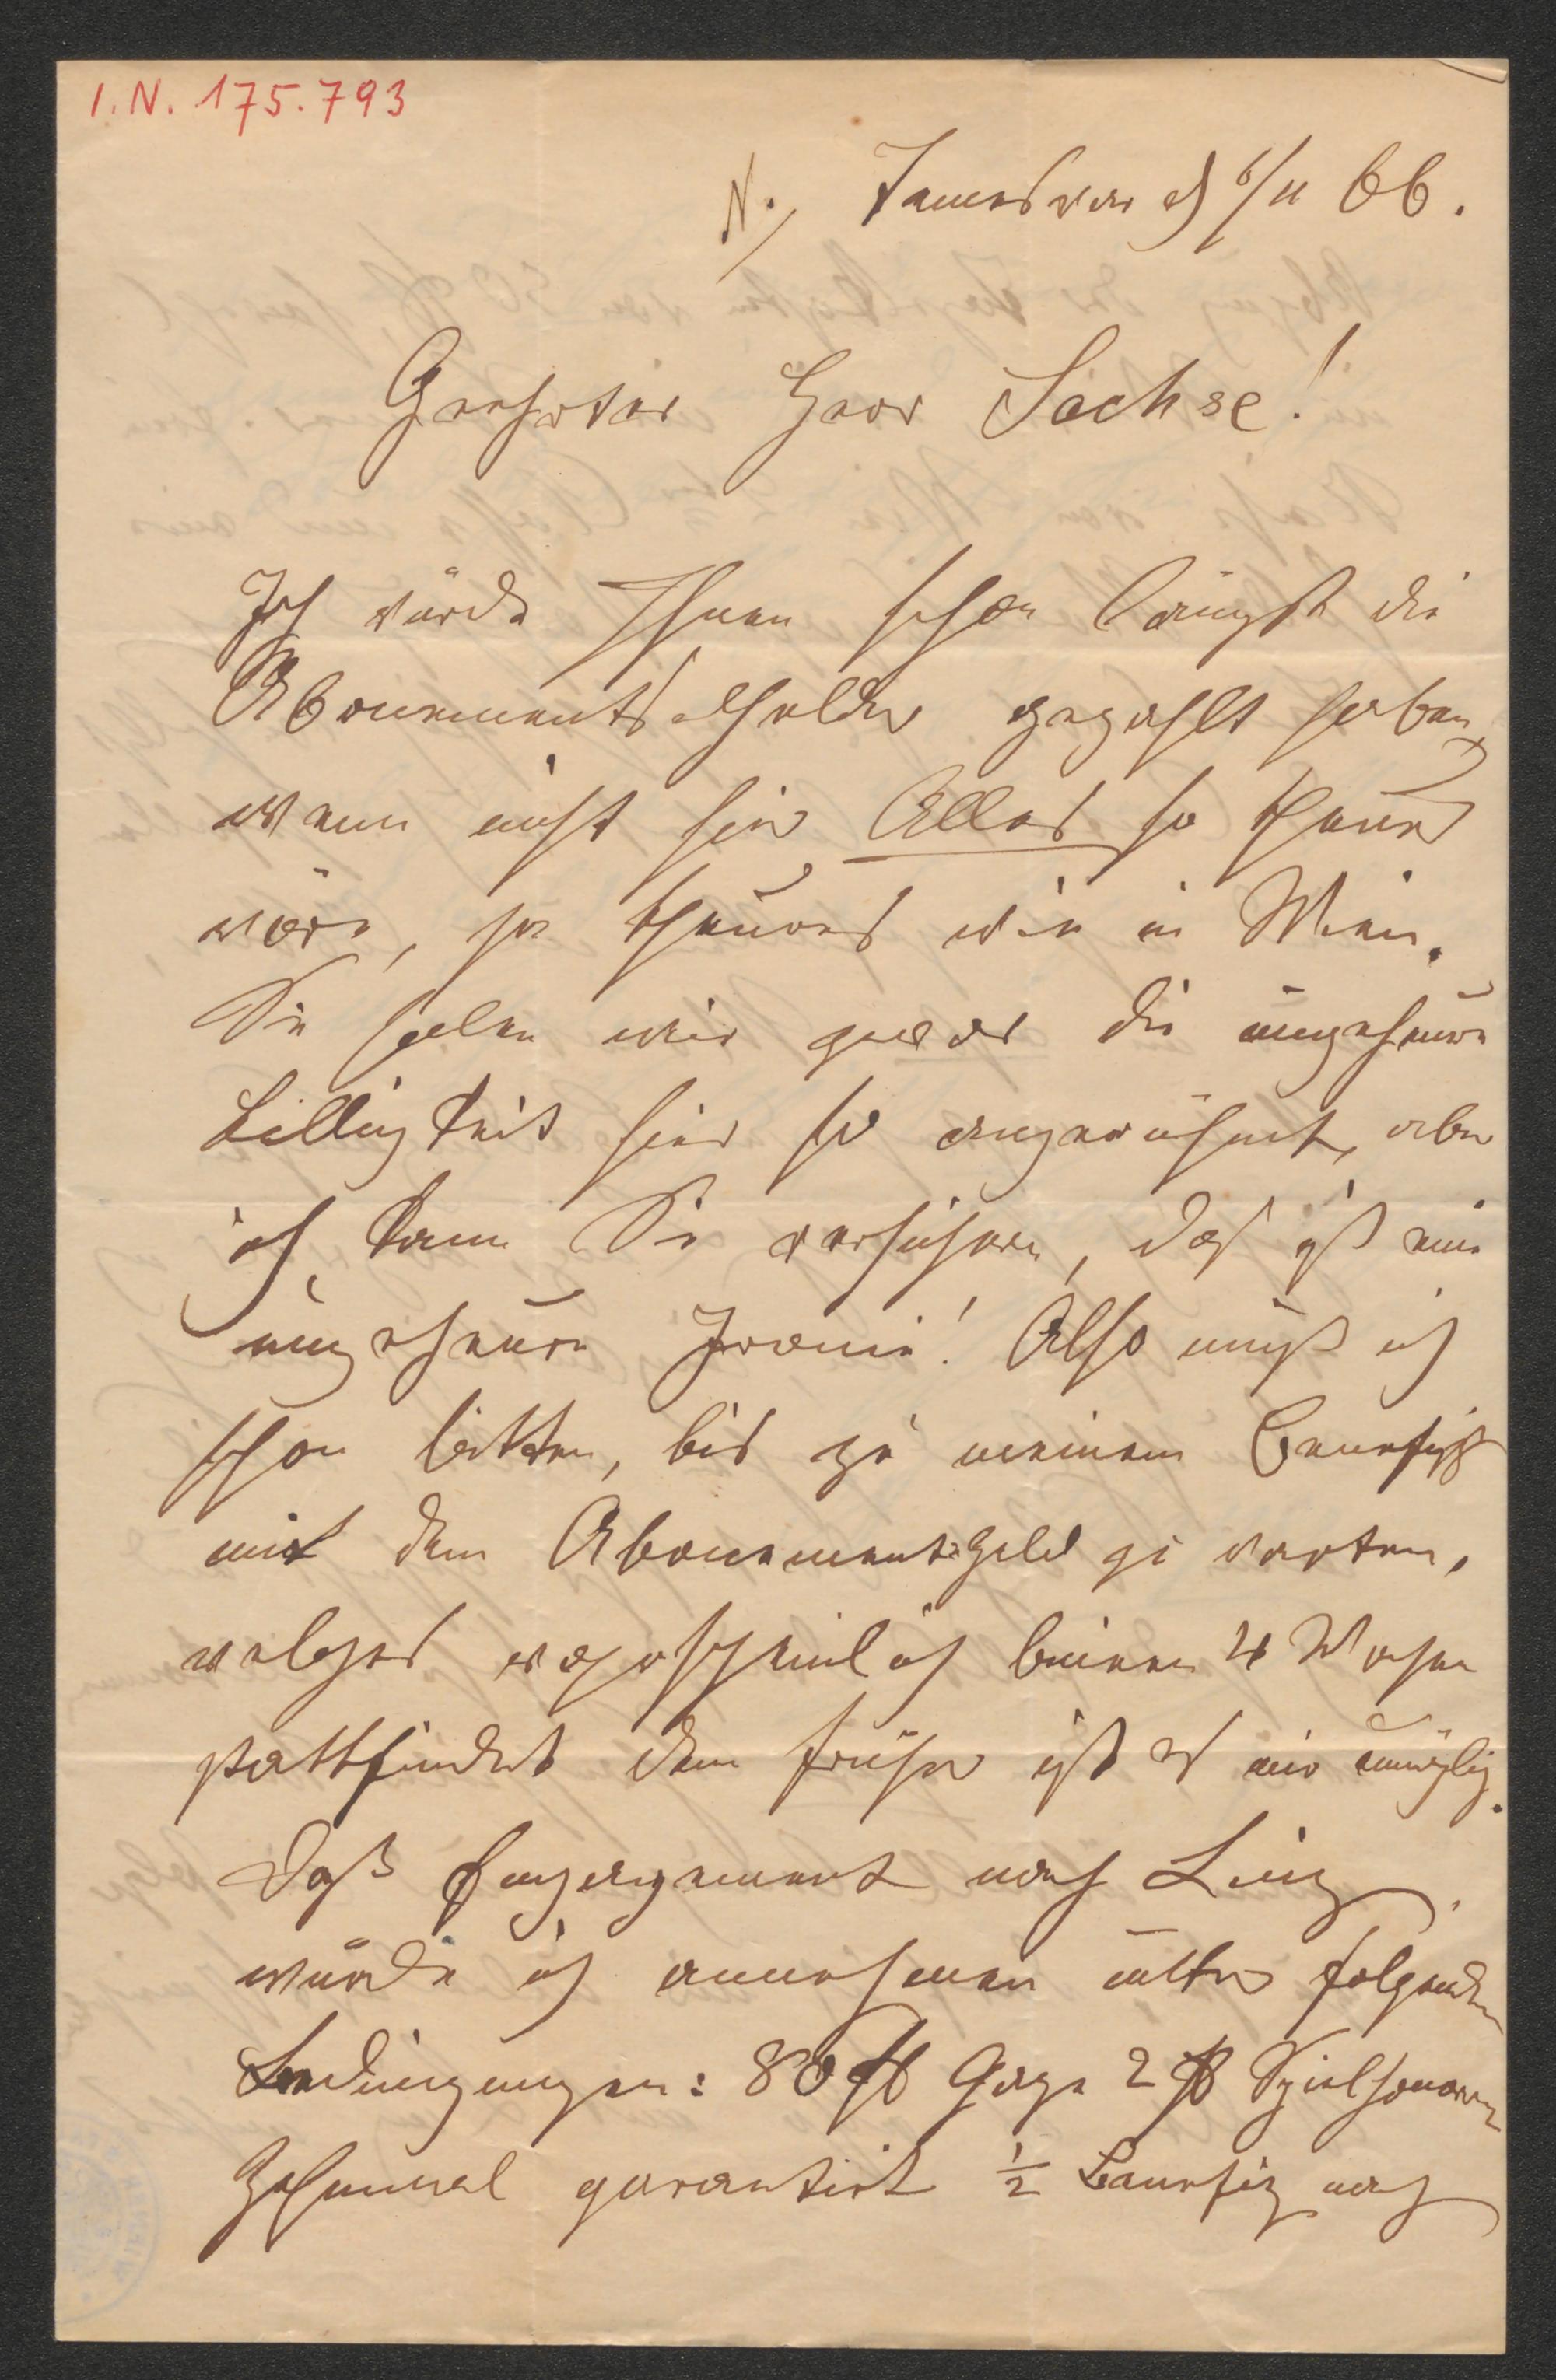 I.N. 175.793
N. Temesvar d 6/11 66.
Geehrter Herr Sachse!
Ich würde Ihnen schon längst die
Abonements Gelder gezahlt haben,
wenn nicht hier Alles so theuer
wäre, so theuer wie in Wien.
Sie haben mir zwar die ungeheure
Billigkeit hier so angerühmt, aber
ich kann Sie versichern, das ist eine
ungeheure Ironie! Also muß ich
schon bitten, bis zu meinem Benefiz
mit dem Abonementsgeld zu warten,
welches wahrscheinlich binnen 4 Wochen
stattfindet denn früher ist es mir unmöglich.
Daß Engagement nach Linz
würde ich annehmen unter folgenden
Bedingungen: 80 fl Gage 2 fl Spielhonorar
Zehnmal garantirt ½ Benefiz nach